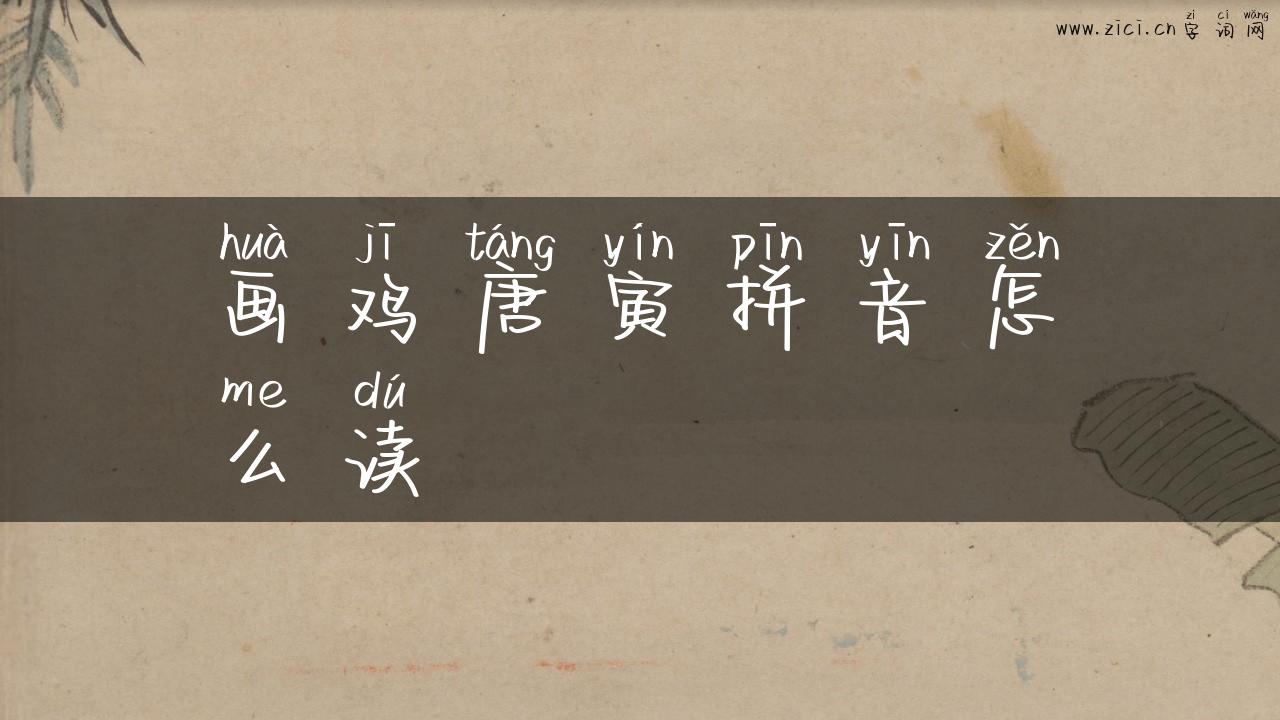 zì cí wǎng
www.zici.cn 字词网
huà jī táng yín pīn yīn zěn
画鸡唐寅拼音怎
me dú
么读